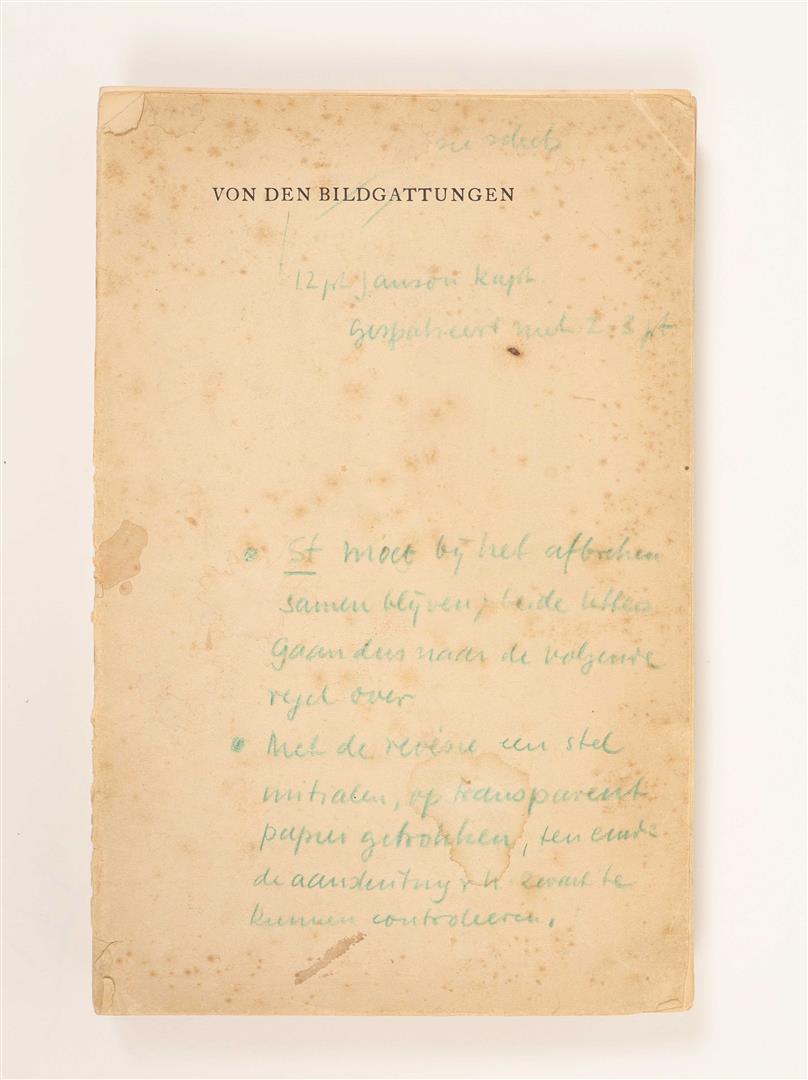 zie schets
VON DEN BILDGATTUNGEN
12 pt Janson kapt.
gespatieerd met 2. 3 pt.
• St moet bij het afbreken
samen blijven; beide letters
gaan dus naar de volgende
regel over
• Met de revisie een stel
initialen, op transparent
papier getrokken, ten einde
de aansluiting v h zwart te
kunnen controleeren.